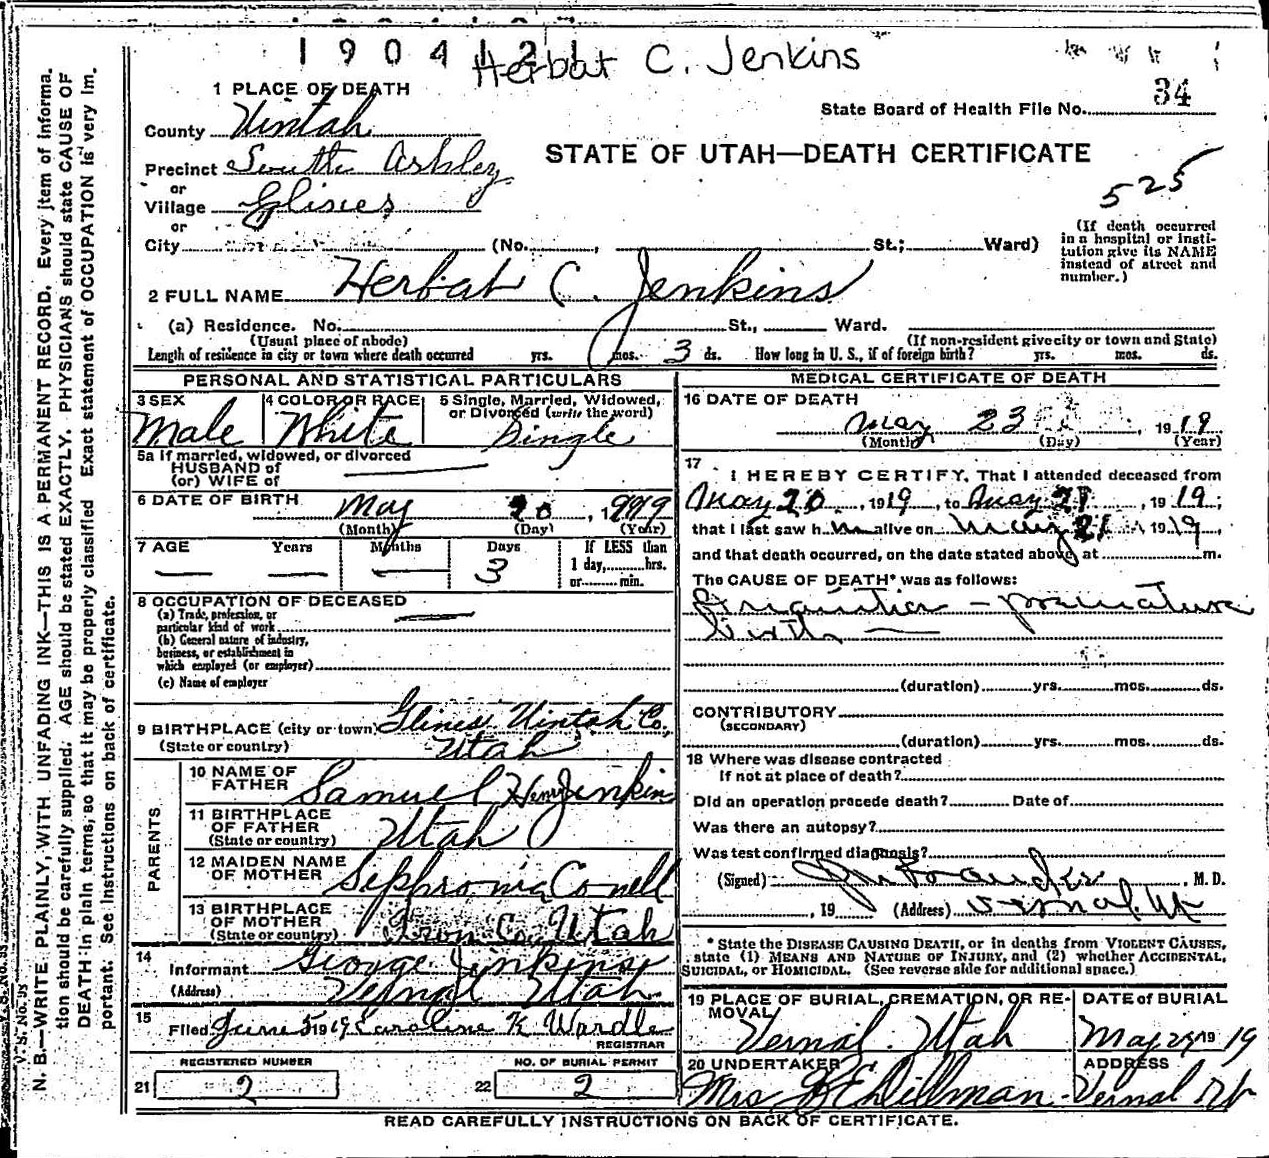 1904121
Herbat C. Jenkins
1 PLACE OF DEATH
State Board of Health File No. 34
County Uintah
STATE OF UTAH—DEATH CERTIFICATE
Precinct South Ashley
or
Village Glines
525
or
City (No. , St.; Ward)
(If death occurred in a hospital or insti-
tution give its NAME
instead of street and
number.)
2 FULL NAME Herbat C. Jenkins
(a) Residence. No. St., Ward.
(Usual place of abode)
(If non-resident give city or town and State)
Length of residence in city or town where death occurred yrs. mos. 3 ds. How long in U. S., if of foreign birth? yrs. mos. ds.
PERSONAL AND STATISTICAL PARTICULARS
3 SEX
Male
4 COLOR OR RACE
White
5 Single, Married, Widowed,
or Divorced (write the word)
Single
5a If married, widowed, or divorced
HUSBAND of
(or) WIFE of
6 DATE OF BIRTH May 20, 1919
(Month) (Day) (Year)
7 AGE Years Months Days If LESS than
1 day, hrs.
or min.
3
8 OCCUPATION OF DECEASED
(a) Trade, profession, or
particular kind of work
(b) General nature of industry,
business, or establishment in
which employed (or employer)
(c) Name of employer
9 BIRTHPLACE (city or town) Glines Uintah Co,
(State or country) Utah
PARENTS
10 NAME OF
FATHER Samuel Henry Jenkins
11 BIRTHPLACE
OF FATHER
(State or country) Utah
12 MAIDEN NAME
OF MOTHER Sephronia Conell
13 BIRTHPLACE
OF MOTHER
(State or country) Iron Co, Utah
14
Informant George Jenkins
(Address) Vernal Utah
15
Filed June 5 1919 Caroline K Wardle
REGISTRAR
REGISTERED NUMBER
21 2
NO. OF BURIAL PERMIT
22 2
MEDICAL CERTIFICATE OF DEATH
16 DATE OF DEATH
May 23, 1919
(Month) (Day) (Year)
17
I HEREBY CERTIFY, That I attended deceased from
May 20, 1919, to May 21, 1919;
that I last saw h m alive on May 21 1919
and that death occurred, on the date stated above, at m.
The CAUSE OF DEATH* was as follows:
premature
birth
(duration) yrs. mos. ds.
CONTRIBUTORY
(SECONDARY)
(duration) yrs. mos. ds.
18 Where was disease contracted
If not at place of death?
Did an operation precede death? Date of
Was there an autopsy?
Was test confirmed diagnosis?
(Signed) , M. D.
, 19 (Address) Vernal, Ut
*State the DISEASE CAUSING DEATH, or in deaths from VIOLENT CAUSES,
state (1) MEANS AND NATURE OF INJURY, and (2) whether ACCIDENTAL,
SUICIDAL, or HOMICIDAL. (See reverse side for additional space.)
19 PLACE OF BURIAL, CREMATION, OR RE-
MOVAL
Vernal. Utah
DATE of BURIAL
May 1919
20 UNDERTAKER
Mrs Dillman
ADDRESS
Vernal Ut
READ CAREFULLY INSTRUCTIONS ON BACK OF CERTIFICATE.
N. B.—WRITE PLAINLY, WITH UNFADING INK—THIS IS A PERMANENT RECORD. Every item of informa-
tion should be carefully supplied. AGE should be stated EXACTLY. PHYSICIANS should state CAUSE OF
DEATH in plain terms, so that it may be properly classified Exact statement of OCCUPATION is very im-
portant. See instructions on back of certificate.